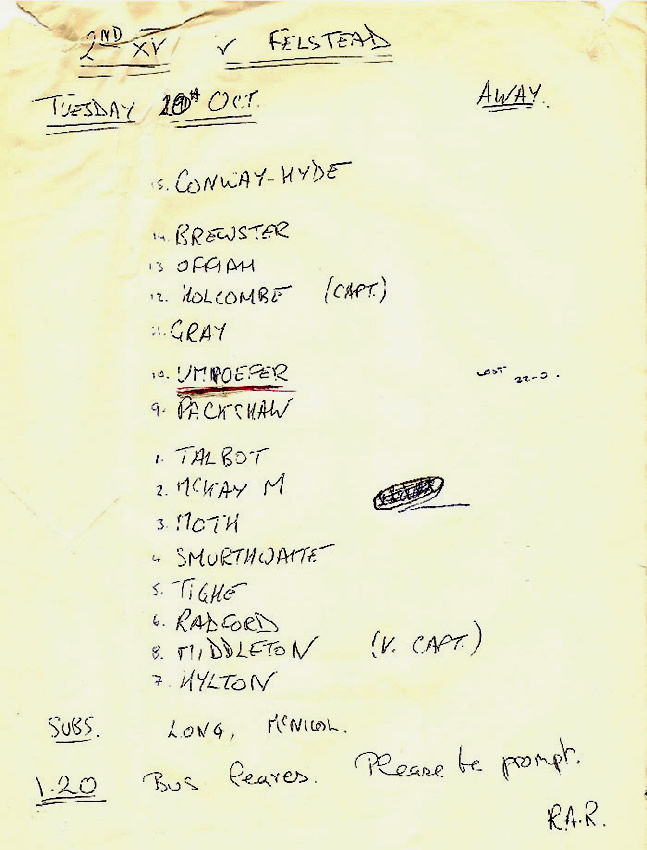 2ND XV v FELSTEAD
TUESDAY 20th OCT. AWAY.
15. CONWAY-HYDE
14. BREWSTER
13 OFFIAH
12. HOLCOMBE (CAPT.)
11. GRAY
10. UMPOEFER LOST 22-3.
9. PACKSHAW
1. TALBOT
2. MCKAY M
3. MOTH
4 SMURTHWAITE
5. TIGHE
6. RADFORD
8. MIDDLETON (V. CAPT.)
7. HYLTON
SUBS. LONG, MCNICOL.
1.20 Bus leaves. Please be prompt.
R.A.R.